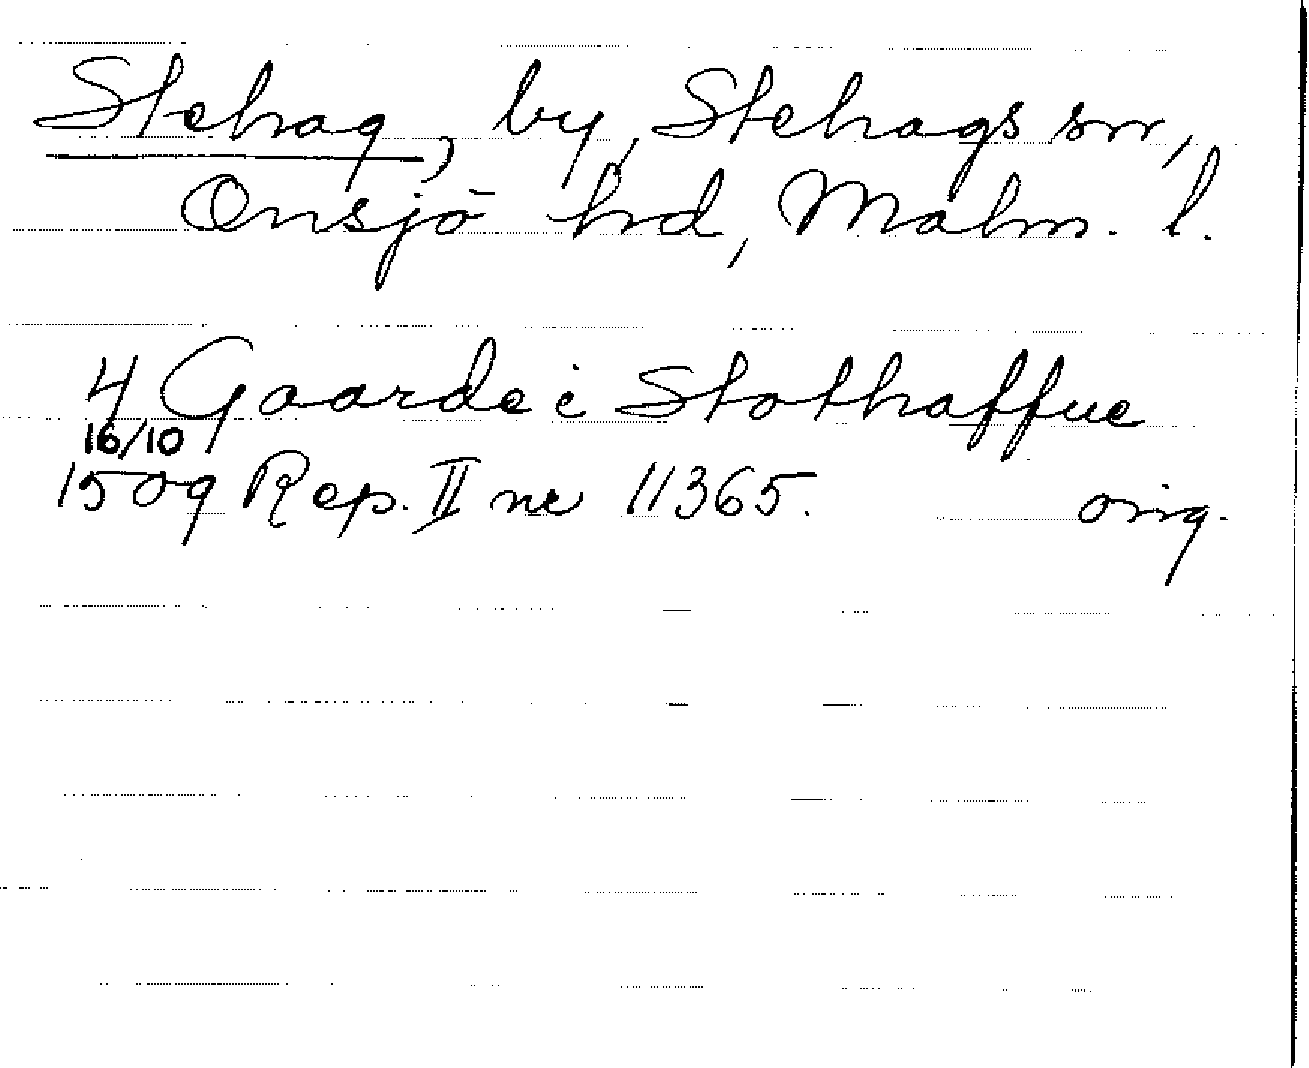 Stehag, by, Stehags sn,
Onsjö hd, Malm. l.
4 Gaarde i Stothaffue
16/10
1509 Rep. II nr 11365. orig.